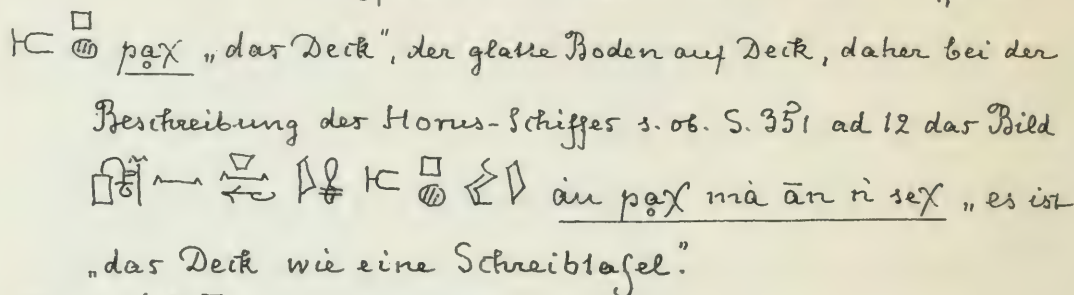 pạχ „das Deck", der glatte Boden auf Deck, daher bei der
Beschreibung des Horus-Schiffes s. ob. S. 351 ad 12 das Bild
áu pạχ mà ān n seχ „es ist
„das Deck wie eine Schreibtafel."